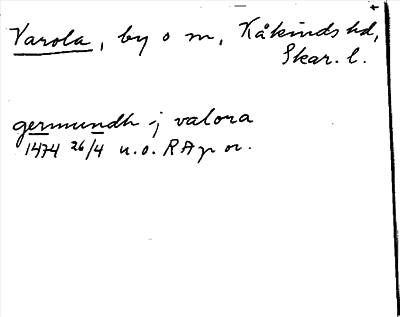 Varola, by o m, Kåkinds hd,
Skar. l.
germundh j valora
1474 26/4 u.o. RAp or.